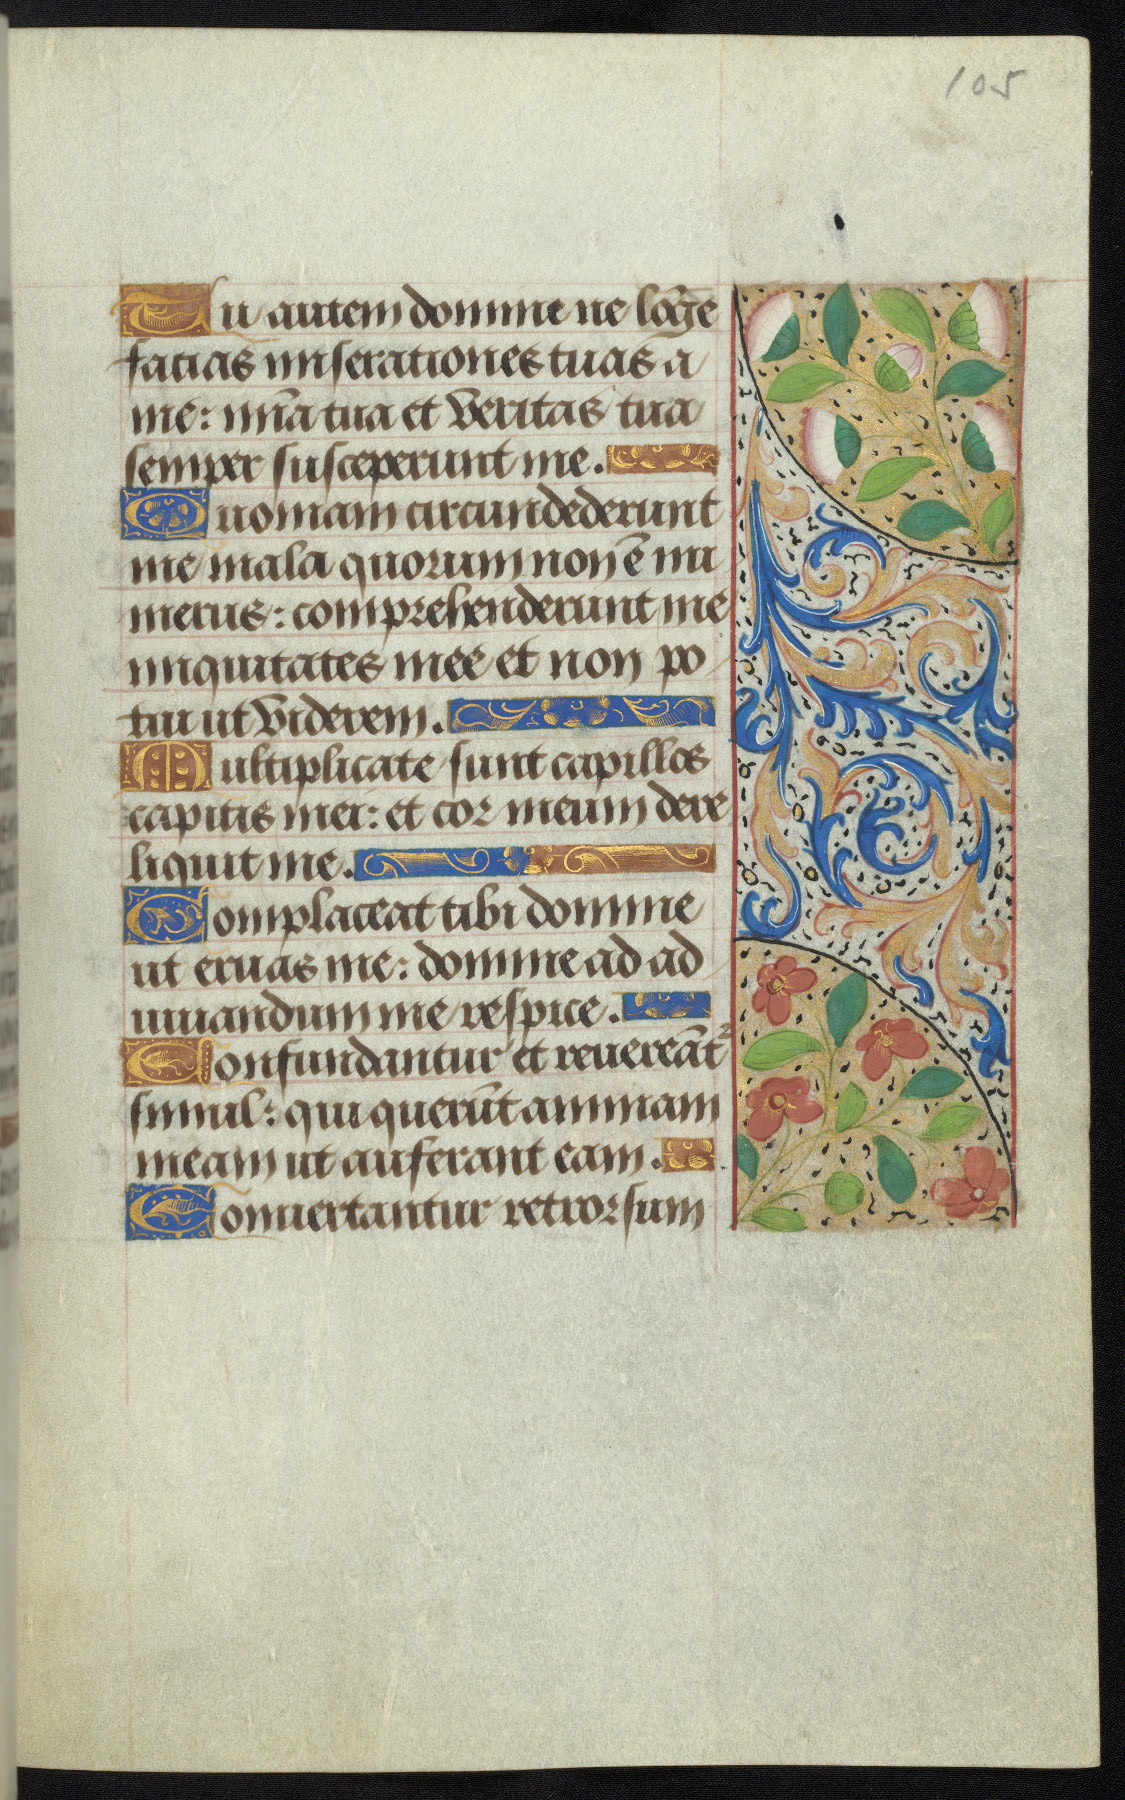 105
Tu autem domine ne lōge
facias miserationes tuas a
me: mīa tua et veritas tua
semper susceperunt me.
Quoniam circundederunt
me mala quorum non ē nu
merus: comprehenderunt me
iniquitates mee et non po
tui ut viderem.
Multiplicate sunt capillos
capitis mei: et cor meum dere
liquit me.
Complaceat tibi domine
ut eruas me: domine ad ad
iuuandum me respice.
Confundantur et reuereāt᷑
simul: qui querūt animam
meam ut auferant eam.
Conuertantur retrorsum